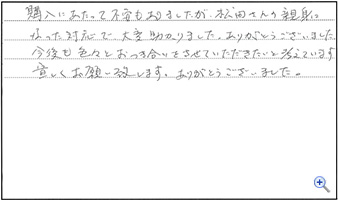 購入にあたって不安もありましたが、松田さんの親身に
なった対応で大変助かりました。ありがとうございました。
今後も色々とおつき合いをさせていただきたいと考えています。
宜しくお願い致します。ありがとうございました。